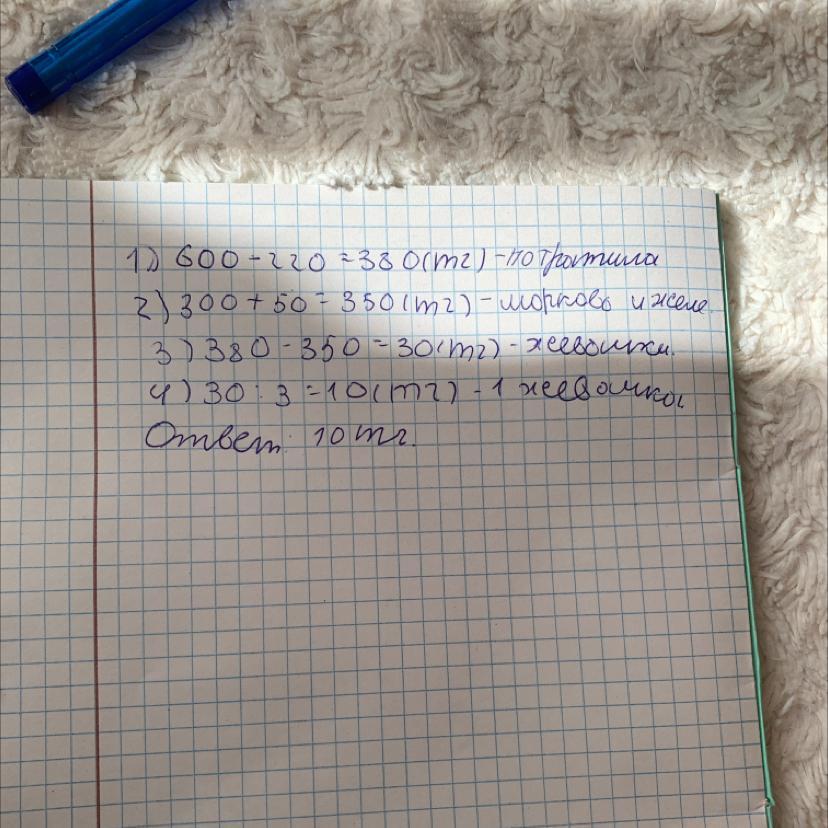 1) 600 - 220 = 380 (тг) - потратила
2) 300 + 50 = 350 (тг) - морковь и желе
3) 380 - 350 = 30 (тг) - жевачки.
4) 30 : 3 = 10 (тг) - 1 жевачка.
Ответ: 10 тг.